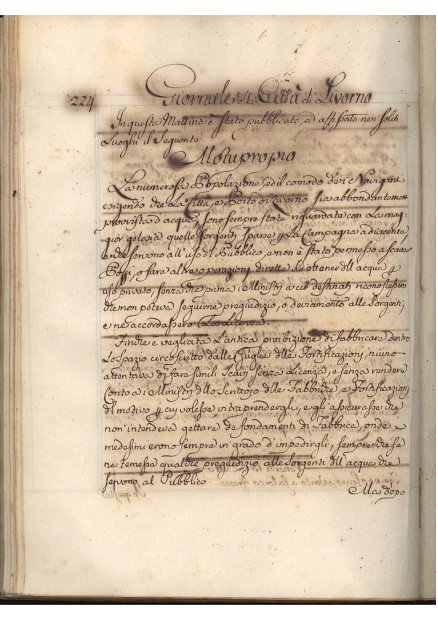 224
Giornale della Città di Livorno
In questa Mattina è stato pubblicato, ed affissato nei soliti
Luoghi il Seguente
Motuproprio
La numerosa Popolazione, ed il comodo dei Naviganti
esigendo che la Città, e Porto di Livorno sia abbondantemente
provvista d'acque, sono sempre state riguardate con la mag-
gior gelosia quelle Sorgenti sparse p la Campagna adiacente
che servono all'uso del Pubblico, e non è stato permesso a scavar
Pozzi, o fare altre operazioni dirette ad ottener dell'acqua p
uso privato, senza che prima i Ministri a ciò destinati riconoscessero
che non poteva seguirne pregiudizio, o deviamento alle Sorgenti,
e ne accordassero la licenza.
Anche è vegliata l'antica proibizione di fabbricare dentro
Lo spazio circoscritto dalle Fortificazioni, niuno
attentava di fare simili senza Licenza, e senza rendere
Conto ai Ministri dello Scrittojo delle Fabbriche, e Fortificazioni
del motivo p cui volesse intraprendergli, e gli assicurasse che
non intendeva gettare de fondamenti di Fabbrica, onde
i medesimi erono sempre in grado d'impedirgli, sempre che se
ne temesse qualche pregiudizio alle Sorgenti dell'acque che
servono al Pubblico.
Ma dopo